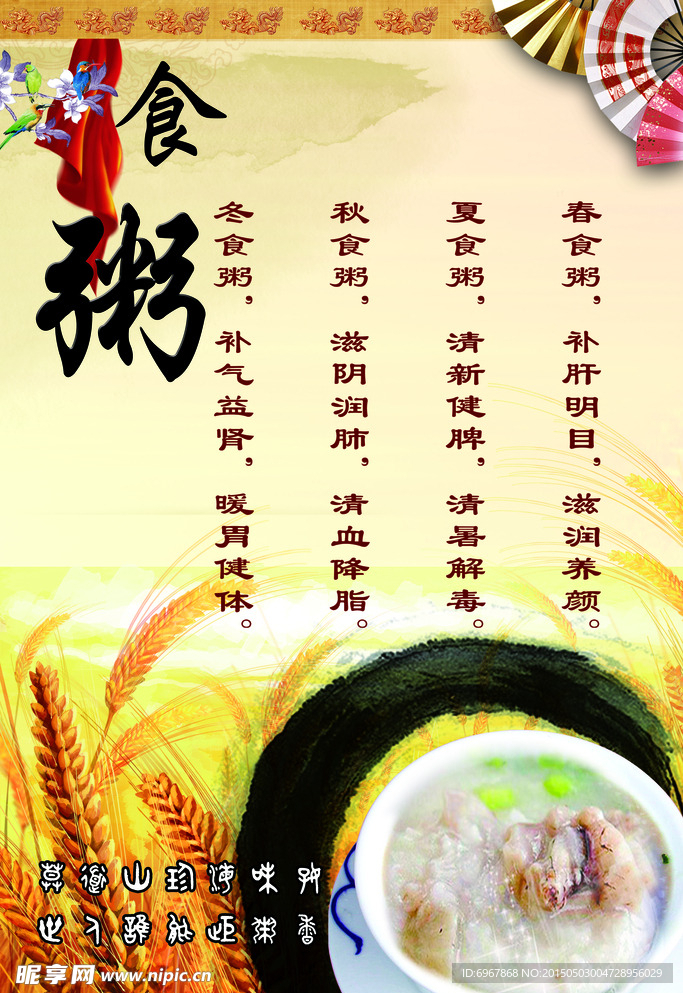 食粥
春食粥，补肝明目，滋润养颜。
夏食粥，清新健脾，清暑解毒。
秋食粥，滋阴润肺，清血降脂。
冬食粥，补气益肾，暖胃健体。
莫道山珍海味好
世人誰能拒粥香
昵享网 www.nipic.cn
ID:6967868 NO:20150503004728956029